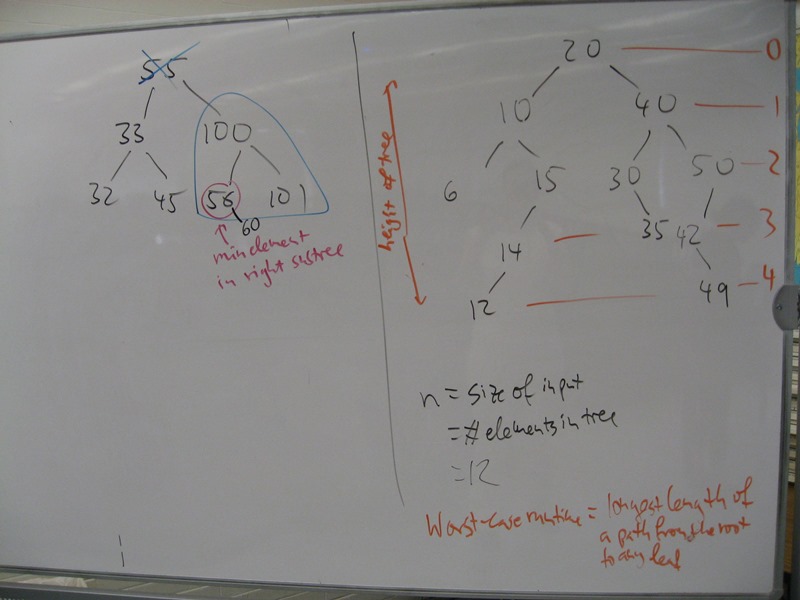 55
33 100
32 45 56 101
60
min element
in right subtree
height of tree
20 0
10 40 1
6 15 30 50 2
14 35 42 3
12 49 4
n = size of input
= # elements in tree
= 12
Worst-case runtime = longest length of
a path from the root
to any leaf